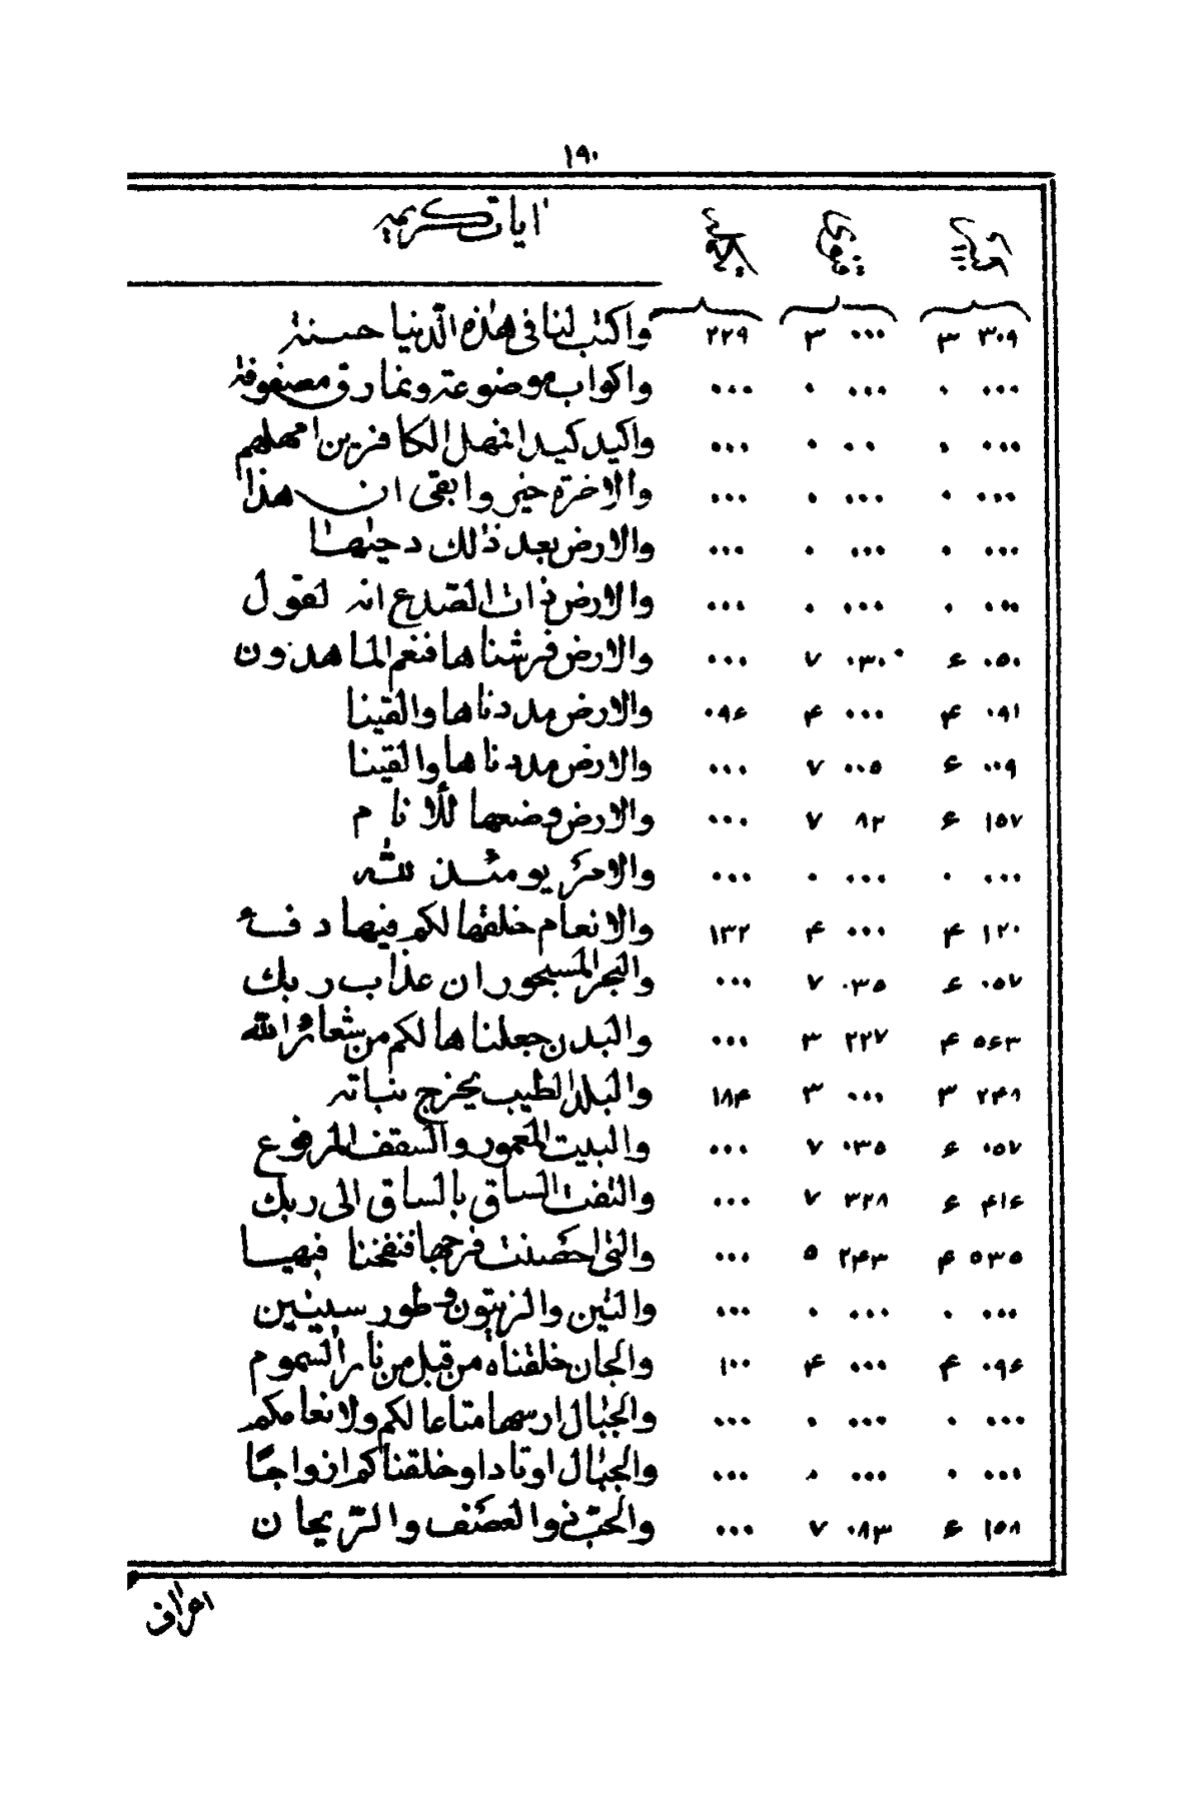 ١٩٠
ايات كريمه
٣٠٩ ٣ ٠٠٠ ٣ ٢٢٩ واكتب لنا فى هذه الدنيا حسنة
٠٠٠ ٠ ٠٠٠ ٠ ٠٠٠ واكواب موضوعة ونمارق مصفوفة
٠٠٠ ٠ ٠٠ ٠ ٠٠٠ واكيد كيدا فمهل الكافرين امهلهم
٠٠٠ ٠ ٠٠٠ ٠ ٠٠٠ والاخرة خير وابقى ان هذا
٠٠٠ ٠ ٠٠٠ ٠ ٠٠٠ والارض بعد ذلك دحيها
٠٠٠ ٠ ٠٠٠ ٠ ٠٠٠ والارض ذات الصدع انه لقول
٠٥٠ ۶ ٠٣٠ ٧ ٠٠٠ والارض فرشناها فنعم الماهدون
٠٩١ ۴ ٠٠٠ ۴ ٠٩۶ والارض مددناها والقينا
٠٠٩ ۶ ٠٠٥ ٧ ٠٠٠ والارض مددناها والقينا
١٥٧ ۶ ٨٢ ٧ ٠٠٠ والارض وضعها للانام
٠٠٠ ٠ ٠٠٠ ٠ ٠٠٠ والامر يومئذ لله
١٢٠ ۴ ٠٠٠ ۴ ١٣٢ والانعام خلقها لكم فيها دفء
٠٥٧ ۶ ٠٣٥ ٧ ٠٠٠ والبحر المسجور ان عذاب ربك
٥۶٣ ۴ ٢٢٧ ٣ ٠٠٠ والبدن جعلناها لكم من شعائر الله
٢۴٨ ٣ ٠٠٠ ٣ ١٨۴ والبلد الطيب يخرج نباته
٠٥٧ ۶ ٠٣٥ ٧ ٠٠٠ والبيت المعمور والسقف المرفوع
۴١۶ ۶ ٣٢٨ ٧ ٠٠٠ والتفت الساق بالساق الى ربك
٥٣٥ ۴ ٢۴٣ ٥ ٠٠٠ والتى احصنت فرجها فنفخنا فيها
٠٠٠ ٠ ٠٠٠ ٠ ٠٠٠ والتين والزيتون وطور سينين
٠٩۶ ۴ ٠٠٠ ۴ ١٠٠ والجان خلقناه من قبل من نار السموم
٠٠٠ ٠ ٠٠٠ ٠ ٠٠٠ والجبال ارسها متاعا لكم ولانعامكم
٠٠٠ ٠ ٠٠٠ ٠ ٠٠٠ والجبال اوتادا وخلقناكم ازواجا
١٥٨ ۶ ٠٨٣ ٧ ٠٠٠ والحب ذو العصف والريحان
اعراف